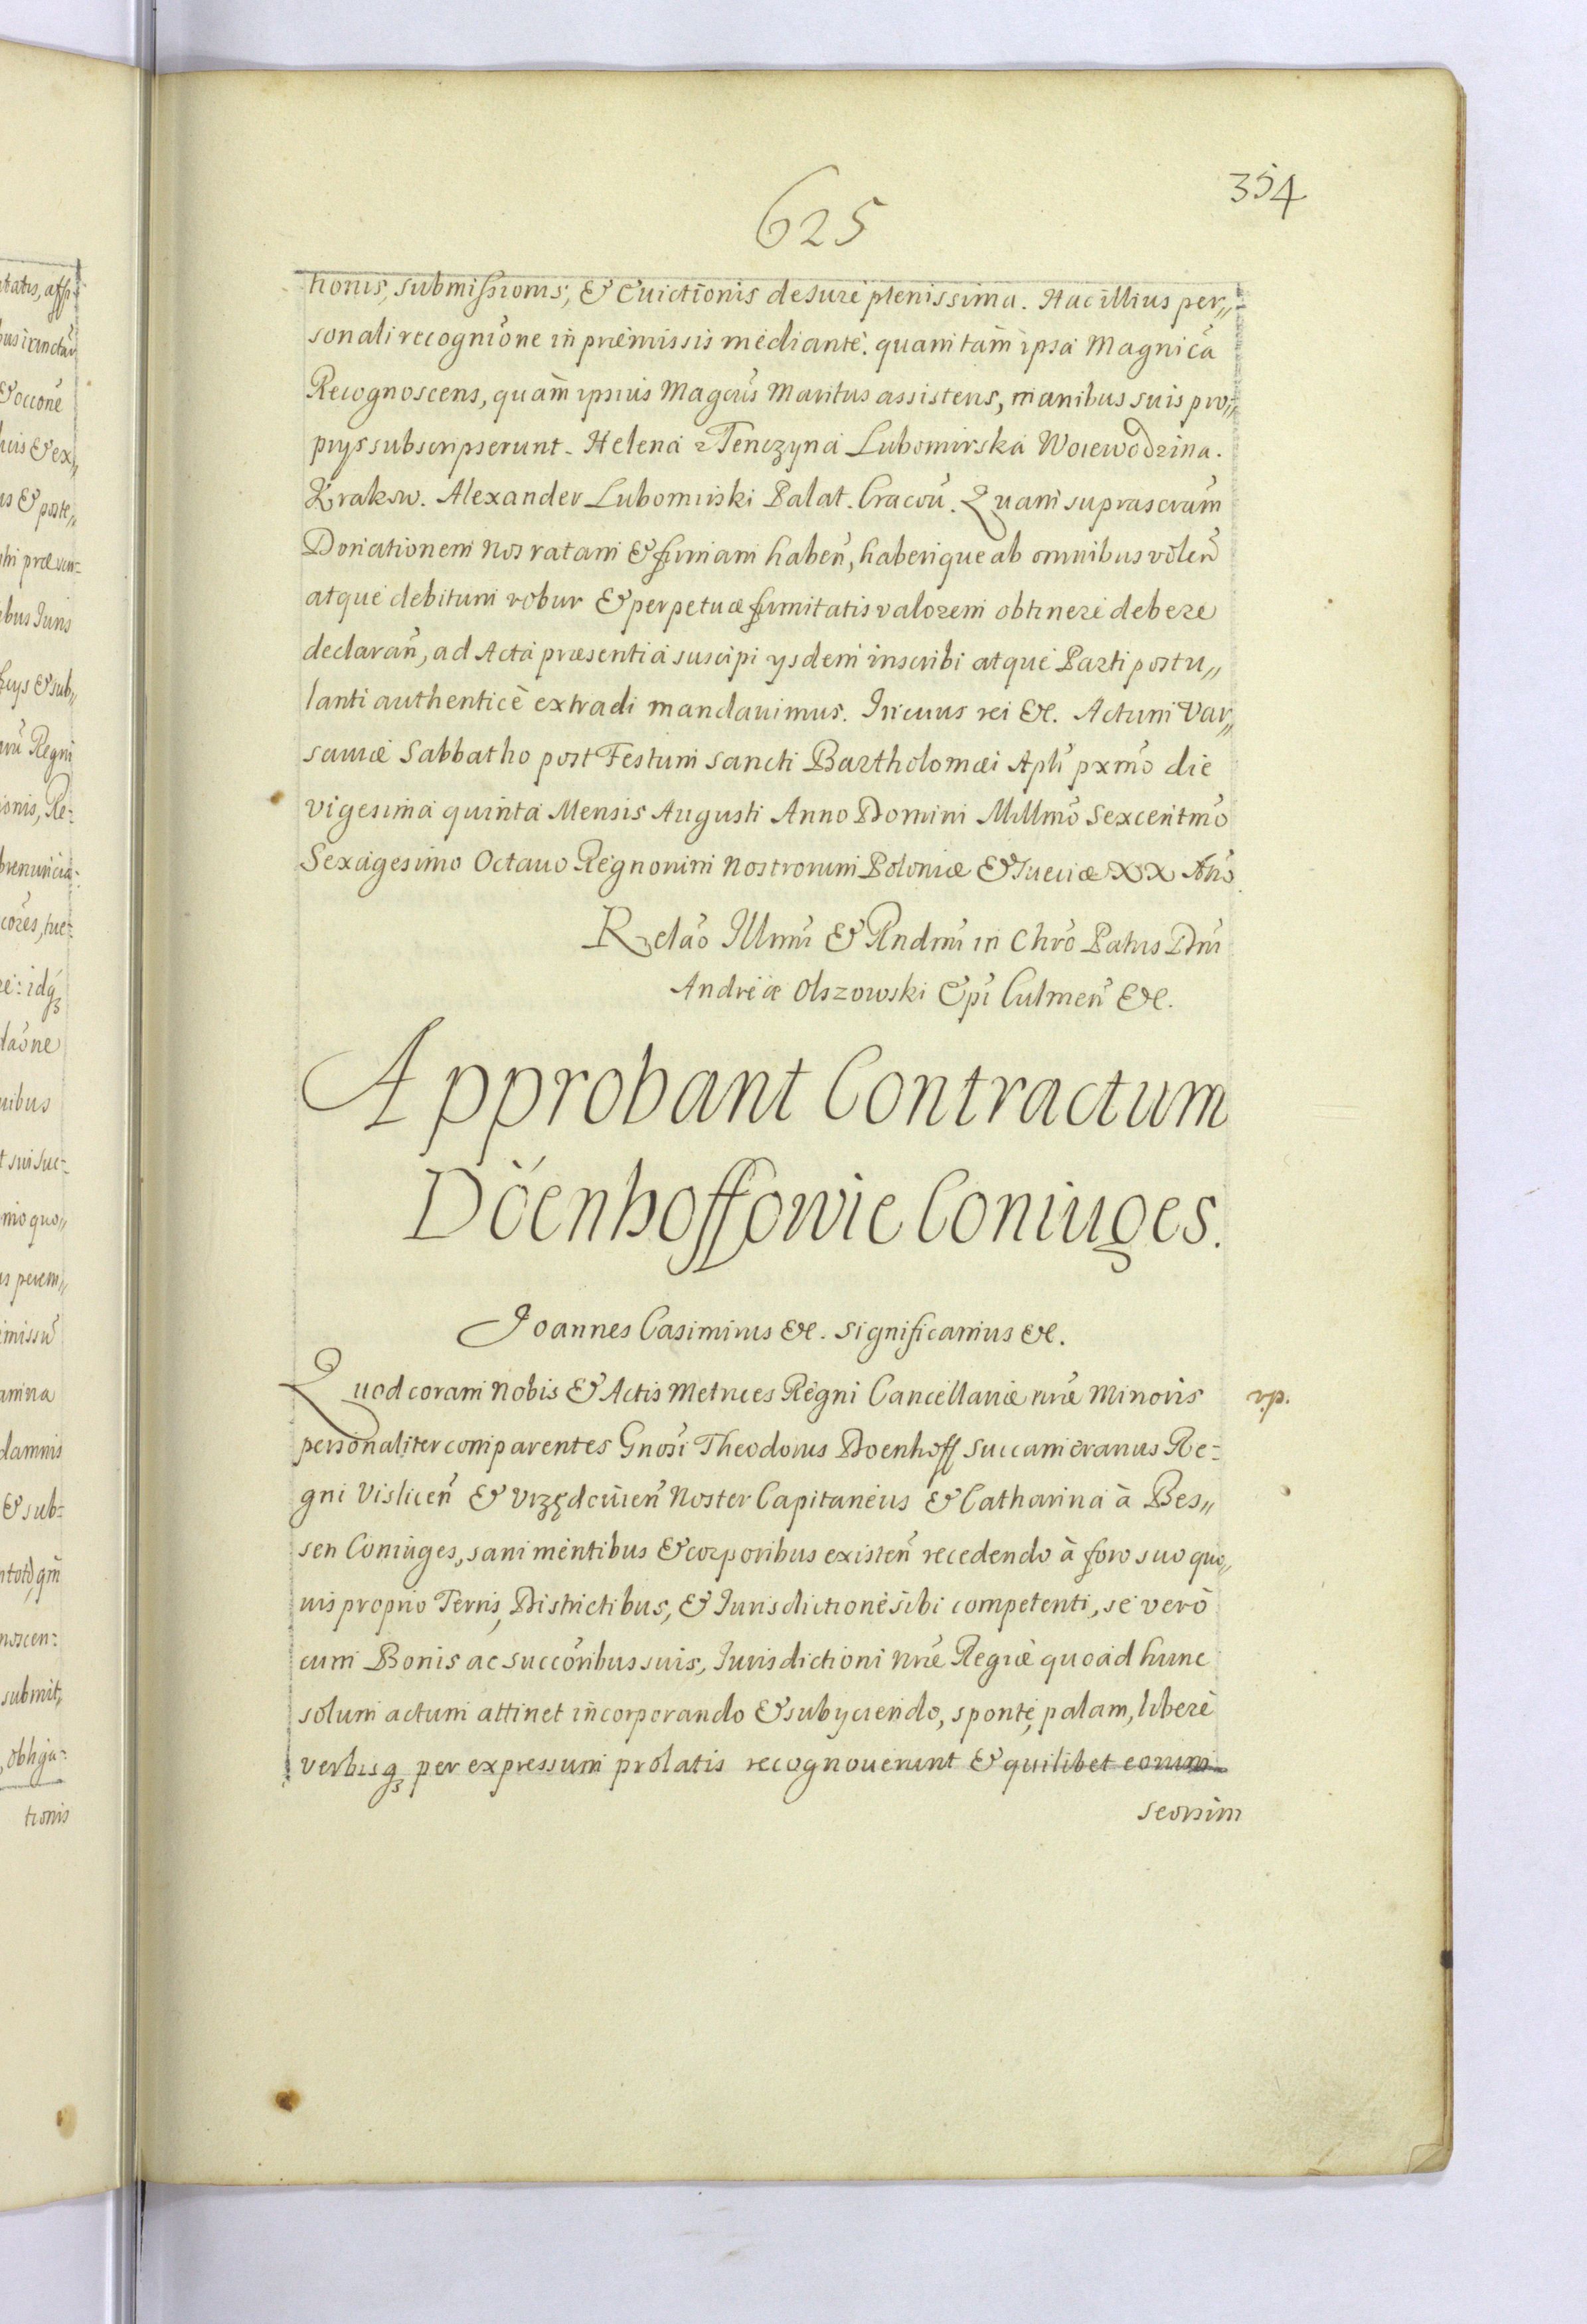 354
625
tionis, submissionis, & Euictionis de Jure plenissima. Hac illius per„
sonali recogniõne in præmissis mediante. quam tàm ipsa Magnicã
Recognoscens, quàm ipsius Magcũs Maritus assistens, manibus suis pro„
prys subscripserunt. Helena z Tenczyna Lubomirska Woiewodzina.
Krakow. Alexander Lubomirski Palat. Cracoũ. Quam suprascrãm
Donationem nos ratam & firmam habeñ, haberique ab omnibus voleñ
atque debitum robur & perpetuæ firmitatis valorem obtinere debere
declarañ, ad Acta præsentia suscipi ysdem inscribi atque Parti postu„
lanti authenticè extradi mandauimus. In cuius rei &c. Actum Var„
sauiæ Sabbatho post Festum Sancti Bartholomæi Apłi pxmõ die
vigesima quinta Mensis Augusti Anno Domini Millmõ Sexcentmõ
Sexagesimo Octauo Regnorum Nostrorum Poloniæ & Sueciæ XX Añõ
Relaõ Illmi & Rndmi in Chrõ Patris Dni
Andreæ Olszowski Epi Culmeñ &c.
Approbant Contractum
Döenhoffowie Coniuges.
Joannes Casimirus &c. Significamus &c.
Quod coram Nobis & Actis Metrices Regni Cancellariæ nræ Minoris
v.p.
personaliter comparentes Gnosi Theodorus Doenhoff Succamerarius Re=
gni Visliceñ & Vrzędouieñ Noster Capitaneus & Catharina à Bes„
sen Coniuges, sani mentibus & corporibus existeñ recedendo à foro suo quo„
uis proprio Terris, Districtibus, & Iurisdictione sibi competenti, se verò
cum Bonis ac succõribus suis, Iurisdictioni Nræ Regiæ quoad hunc
solum actum attinet incorporando & subyciendo, sponte, palam, liberè
verbisq3 per expressum prolatis recognouerunt & quilibet eorum
seorsim